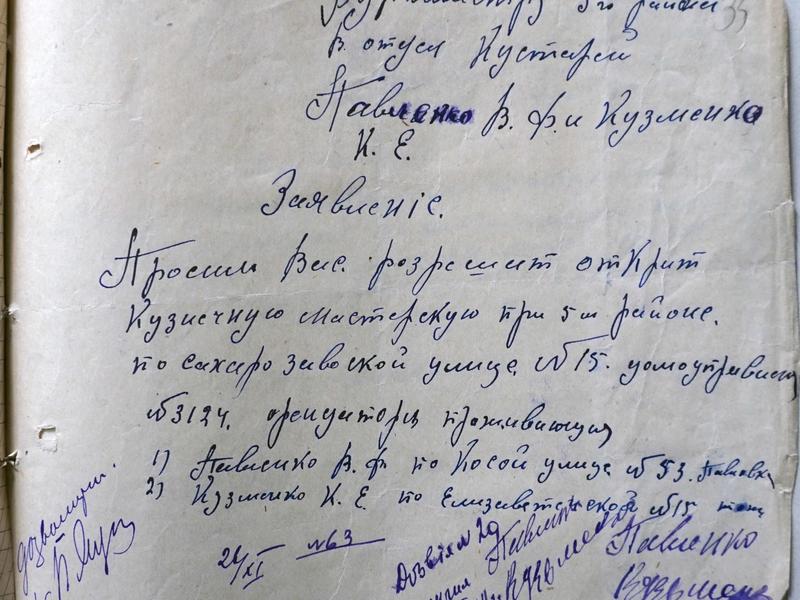 5го района
В. отдел Кустарей
Павленко В. Ф. и Кузменко
К. Е.
Заявленіе.
Просим Вас. розрешит откРит
Кузнечную мастерскую при 5м районе.
по сахарозавоской улице №15. домоуправлен
№3124. орендатори проживающия
1) Павленко В. Ф по Косой улице №53. Павловка
2) Кузменко К. Е по Елизаветенской №15 тоже
дозволити.
26/XI №63
Дозвіл №20
Павленко
Кузьменко
Павленко
Кузьменко